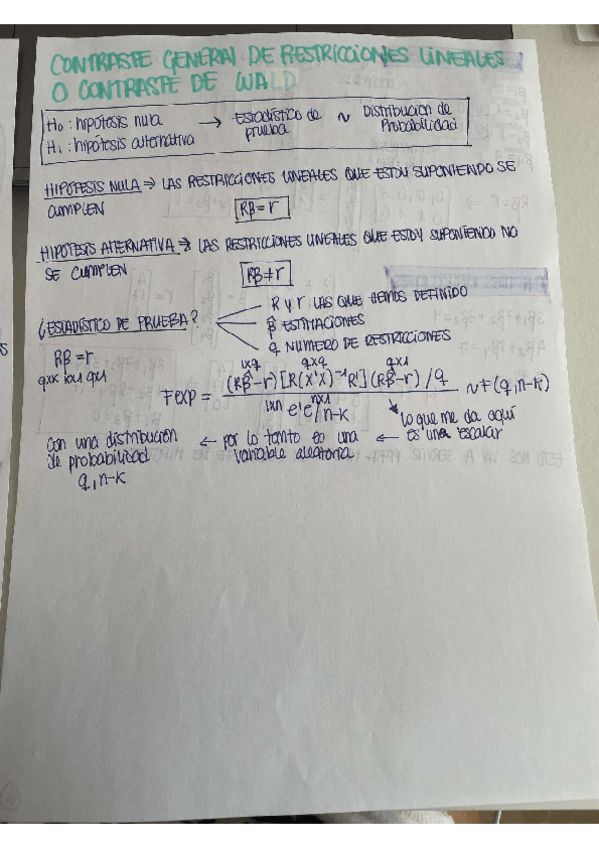 CONTRASTE GENERAL DE RESTRICCIONES LINEALES
O CONTRASTE DE WALD
H₀ : hipótesis nula → Estadístico de prueba ~ Distribución de Probabilidad
H₁ : hipótesis alternativa
HIPÓTESIS NULA ⇒ LAS RESTRICCIONES LINEALES QUE ESTOY SUPONIENDO SE
CUMPLEN
Rβ = r
HIPÓTESIS ALTERNATIVA ⇒ LAS RESTRICCIONES LINEALES QUE ESTOY SUPONIENDO NO
SE CUMPLEN
Rβ ≠ r
¿ESTADÍSTICO DE PRUEBA?
R y r LAS QUE HEMOS DEFINIDO
β̂ ESTIMACIONES
q NÚMERO DE RESTRICCIONES
Rβ = r
qxk kx1 qx1
1xq qxq qx1
Fexp = (Rβ̂-r)[R(X'X)⁻¹R'](Rβ̂-r)/q / e'e/n-k ~ F(q,n-k)
1xn nx1
Lo que me da aquí
es una escalar
← por lo tanto es una
variable aleatoria ←
Con una distribución
de probabilidad
q, n-k